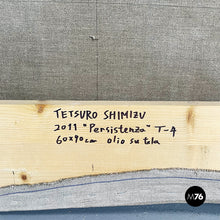 TETSURO SHIMIZU
2011 "Persistenza" T-4
60x90cm olio su tela
M76